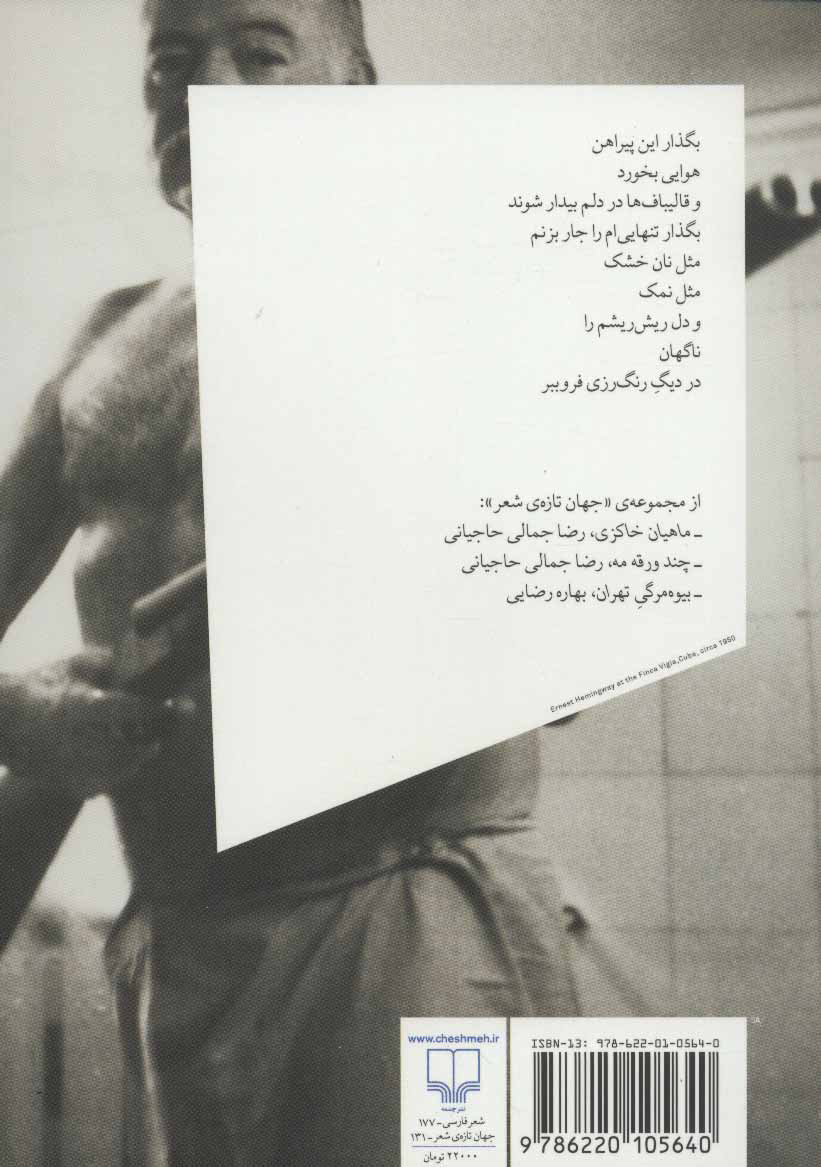 بگذار این پیراهن
هوایی بخورد
و قالیباف‌ها در دلم بیدار شوند
بگذار تنهایی‌ام را جار بزنم
مثل نان خشک
مثل نمک
و دل ریش‌ریشم را
ناگهان
در دیگِ رنگ‌رزی فروببر
از مجموعه‌ی «جهان تازه‌ی شعر»:
ـ ماهیان خاکزی، رضا جمالی حاجیانی
ـ چند ورقه مه، رضا جمالی حاجیانی
ـ بیوه‌مرگیِ تهران، بهاره رضایی
Ernest Hemingway at the Finca Vigia, Cuba, circa 1950
www.cheshmeh.ir
نشر چشمه
شعر فارسی ـ ۱۷۷
جهان تازه‌ی شعر ـ ۱۳۱
۲۲۰۰۰ تومان
ISBN-13: 978-622-01-0564-0
9 786220 105640